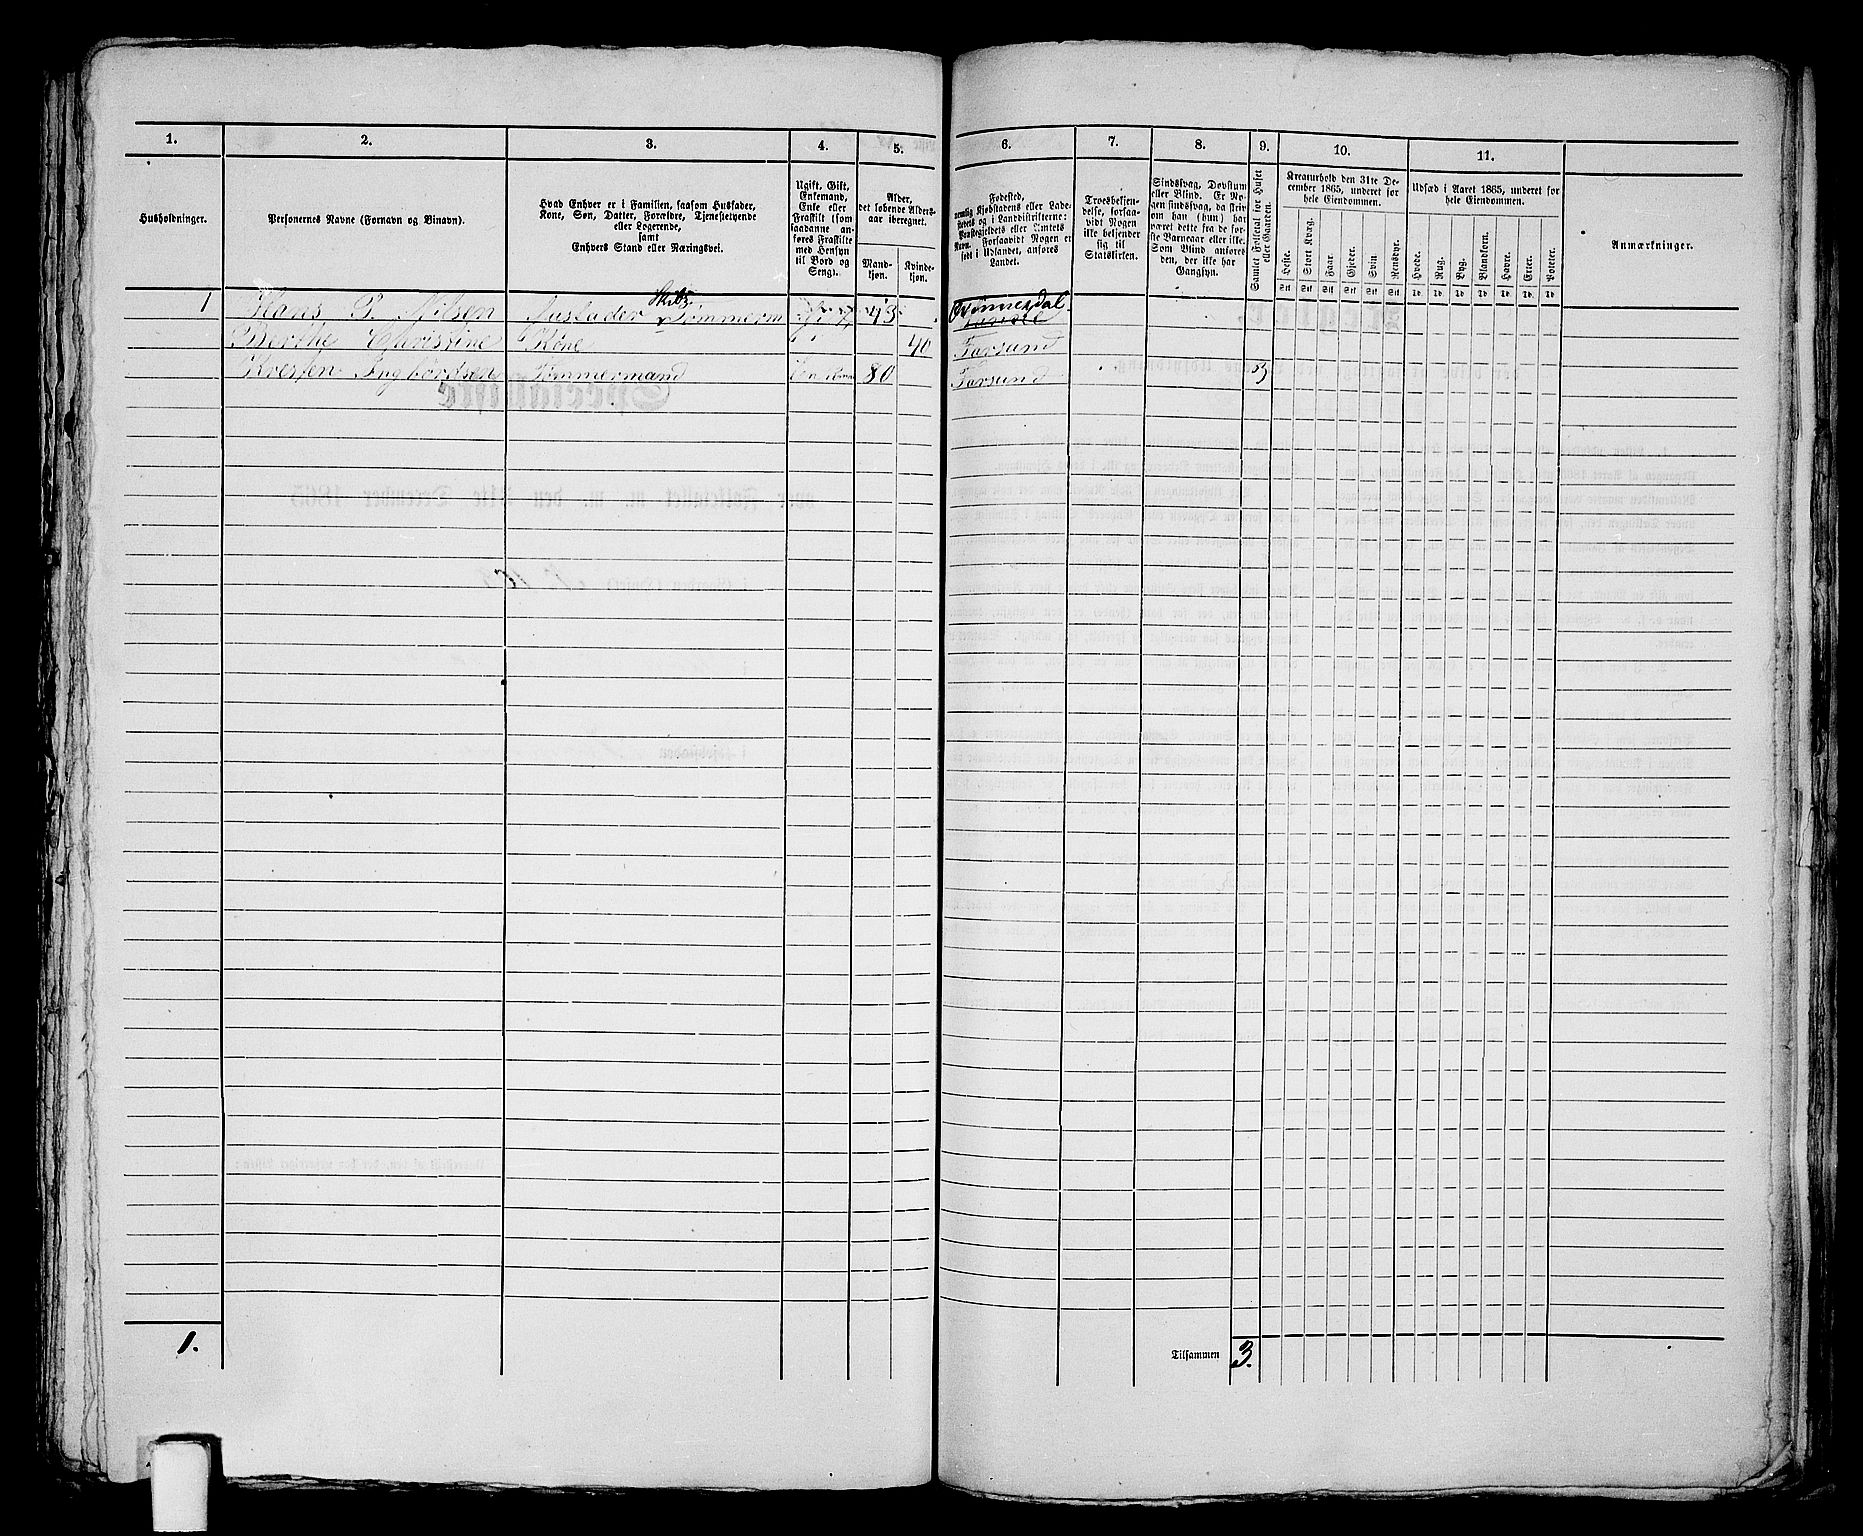 1. 2. 3. 4. 5. 6. 7. 8. 9. 10. 11.
Husholdninger.
Personernes Navne (Fornavn og Binavn).
Hvad Enhver er i Familien, saasom Husfader,
Kone, Søn, Datter, Forældre, Tjenestetyende
eller Logerende,
samt
Enhvers Stand eller Næringsvei.
Ugift, Gift,
Enkemand,
Enke eller
Fraskilt (som
saadanne an-
føres Fraskilte
med Hensyn
til Bord og
Seng).
Alder,
det løbende Alders-
aar iberegnet.
Mand-
kjøn.
Kvinde-
kjøn.
Fødested,
nemlig Kjøbstadens eller Lade-
stedets og i Landdistrikterne:
Præstegjeldets eller Amtets
Navn. Forsaavidt Nogen er
født i Udlandet, anføres
Landet.
Troesbekjen-
delse, forsaa-
vidt Nogen
ikke bekjender
sig til
Statskirken.
Sindssvag, Døvstum
eller Blind. Er No-
gen sindssvag, da skriv
om han (hun) har
været dette fra de før-
ste Barneaar eller ikke.
Som Blind anføres
den, der ikke har
Gangsyn.
Samlet Folketal for Huset
eller Gaarden.
Kreaturhold den 31te De-
cember 1865, underet for
hele Eiendommen.
Heste. Stort Kvæg. Faar. Gjeder. Svin. Rensdyr.
Stk Stk Stk Stk Stk Stk
Udsæd i Aaret 1865, underet for
hele Eiendommen.
Hvede. Rug. Byg. Blandkorn. Havre. Erter. Poteter.
Td. Td. Td. Td. Td. Td. Td.
Anmærkninger.
1 Hans P. Nilsen Husfader Skibs Tømmerm Gift 43 Qvinnesdal
Berthe Christine Kone " 40 Farsund
Kresten Ingbördsen Tömmermand 80 Farsund 3
1.
Tilsammen 3.